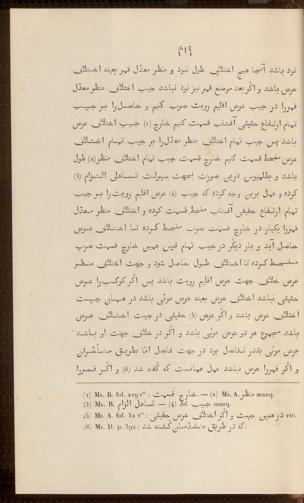 ٤١٦
نود باشد آنجا هیچ اختلاف طول نبود و منظر معدّل قمر بعینه اختلاف
عرض باشد و اگر بعد موضع قمر نیز نود نباشد جیب اختلاف منظر معدّل
قمر را در جیب عرض اقلیم رویت ضرب کنیم و حاصل را بر جیب
تمام ارتفاع حقیقی آفتاب قسمت کنیم خارج (1) جیب اختلاف عرض
باشد پس جیب تمام اختلاف منظر معدّل را بر جیب تمام اختلاف
عرض منحط قسمت کنیم خارج قسمت جیب تمام اختلاف منظر (2) طول
باشد و بطلمیوس درین صورت بجهت سهولت تساهلی التزام (3)
کرده و عمل برین وجه کرده که جیب (4) عرض اقلیم رویت را بر جیب
تمام ارتفاع حقیقی آفتاب منحط قسمت کرده و اختلاف منظر معدّل
قمر را یکبار در خارج قسمت ضرب منحط کرده تا اختلاف عرض
حاصل آید و بار دیگر در جیب تمام قوس همین خارج قسمت ضرب
منحط کرده تا اختلاف طول حاصل شود و جهت اختلاف منظر
عرض خلاف جهت عرض اقلیم رویت باشد پس اگر کوکب را عرض
حقیقی نباشد اختلاف عرض بعینه عرض مرئی باشد در همان جهت
اختلاف عرض باشد و اگر عرض (5) حقیقی در جهت اختلاف عرض
باشد مجموع هر دو عرض مرئی باشد و اگر در خلاف جهت او باشد
عرض مرئی بقدر تفاضل بود در جهت فاضل امّا بطریق متأخّران
و اگر قمر را عرض نباشد عمل همانست که گفته شد (6) و اگر قمر را
(1) Ms. B. fol. 219 v°: خارج قسمت. — (2) Ms. A. منظر manq.
(3) Ms. B. تساهل الزام. — (4) Id. جیب manq.
(5) Ms. A. fol. 32 v°: در همین جهت و اگر اختلاف عرض حقیقی etc.
(6) Ms. D. p. 392: که در طریق متقدّمان گفته شد.